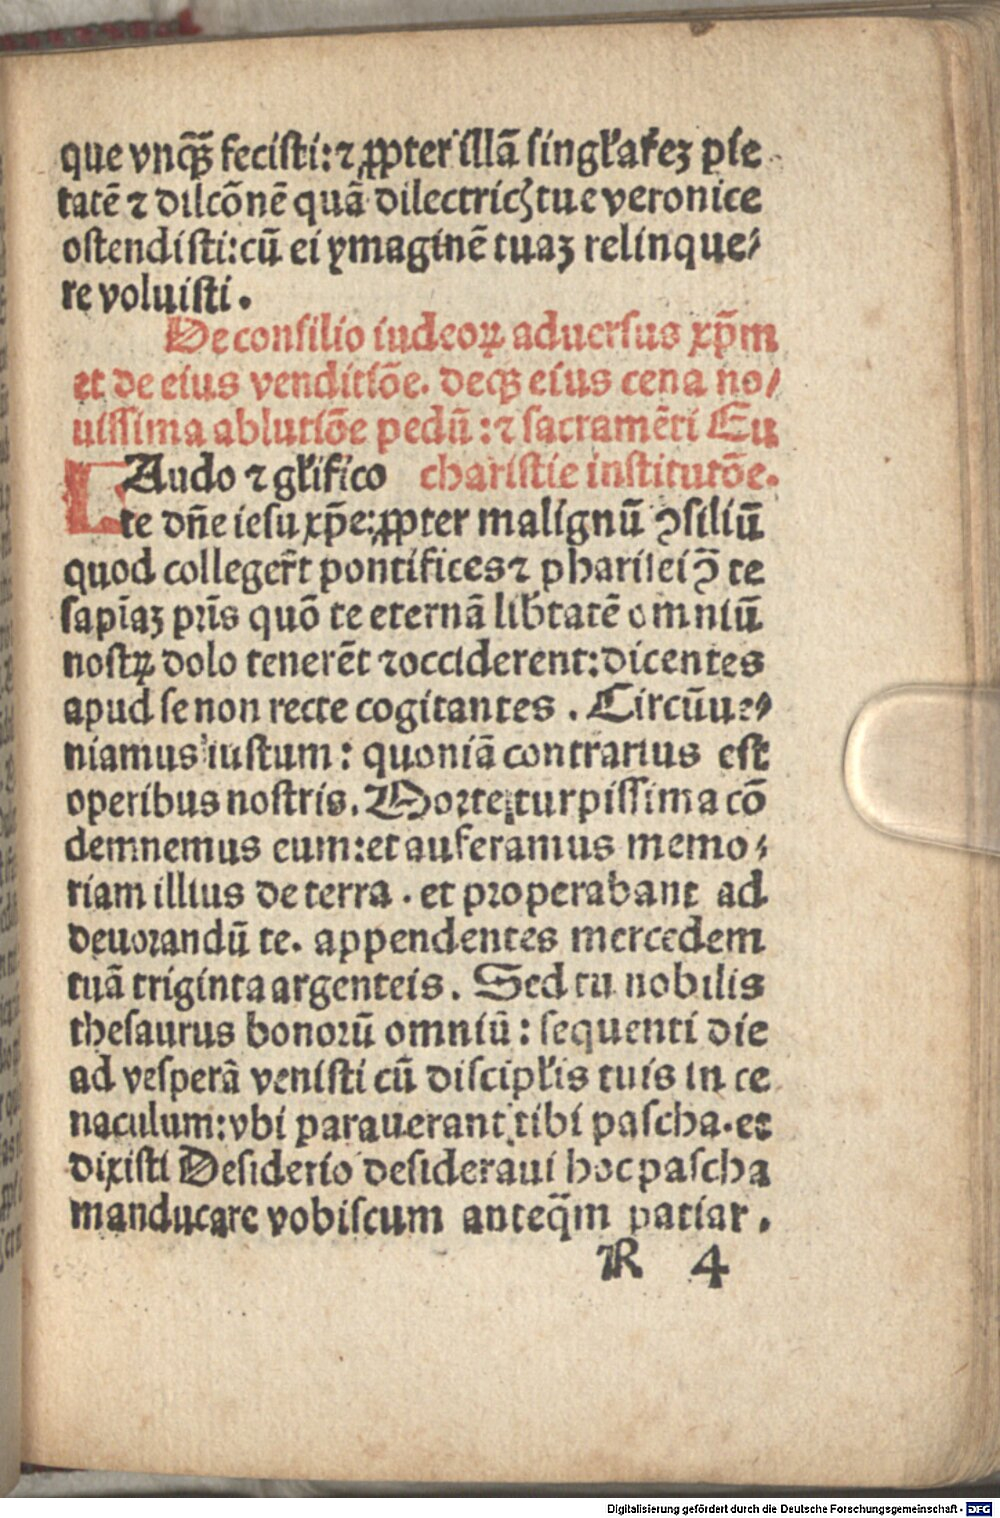 que vnqꝫ fecisti: ⁊ ꝓpter illã singl̃arẽ pie
tatẽ ⁊ dilcõnẽ quã dilectrici tue veronice
ostendisti: cũ ei ymaginẽ tuaꝫ relinque⸗
re voluisti.
De consilio iudeoꝝ aduersus xp̃m
et de eius venditiõe. deqꝫ eius cena no⸗
uissima ablutiõe pedũ: ⁊ sacramẽti Eu
charistie institutõe.
LAudo ⁊ gl̃ifico
te dñe iesu xp̃e: ꝓpter malignũ ꝯsiliũ
quod colleger̃t pontifices ⁊ pharisei ꝯ̃ te
sapiãꝫ pr̃is quõ te eternã lib̃tatẽ omniũ
nostꝝ dolo tenerẽt ⁊ occiderent: dicentes
apud se non recte cogitantes. Circũue⸗
niamus iustum: quoniã contrarius est
operibus nostris. Morte turpissima cõ
demnemus eum: et auferamus memo⸗
riam illius de terra. et properabant ad
deuorandũ te. appendentes mercedem
tuã triginta argenteis. Sed tu nobilis
thesaurus bonorũ omniũ: sequenti die
ad vesperã venisti cũ discipl̃is tuis in ce
naculum: vbi parauerant tibi pascha. et
dixisti Desiderio desideraui hoc pascha
manducare vobiscum anteq̃m patiar.
R 4
Digitalisierung gefördert durch die Deutsche Forschungsgemeinschaft - DFG